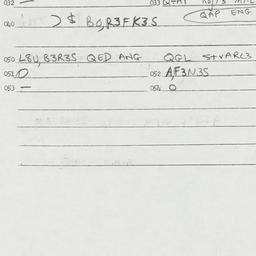 032 — 033
QAP ENG
040 ) $ BO,R3FK3S
050 L8U,B3R3S QED ANG QGL StVARL3
051 O 052 A,F3N3S
053 — 054 O